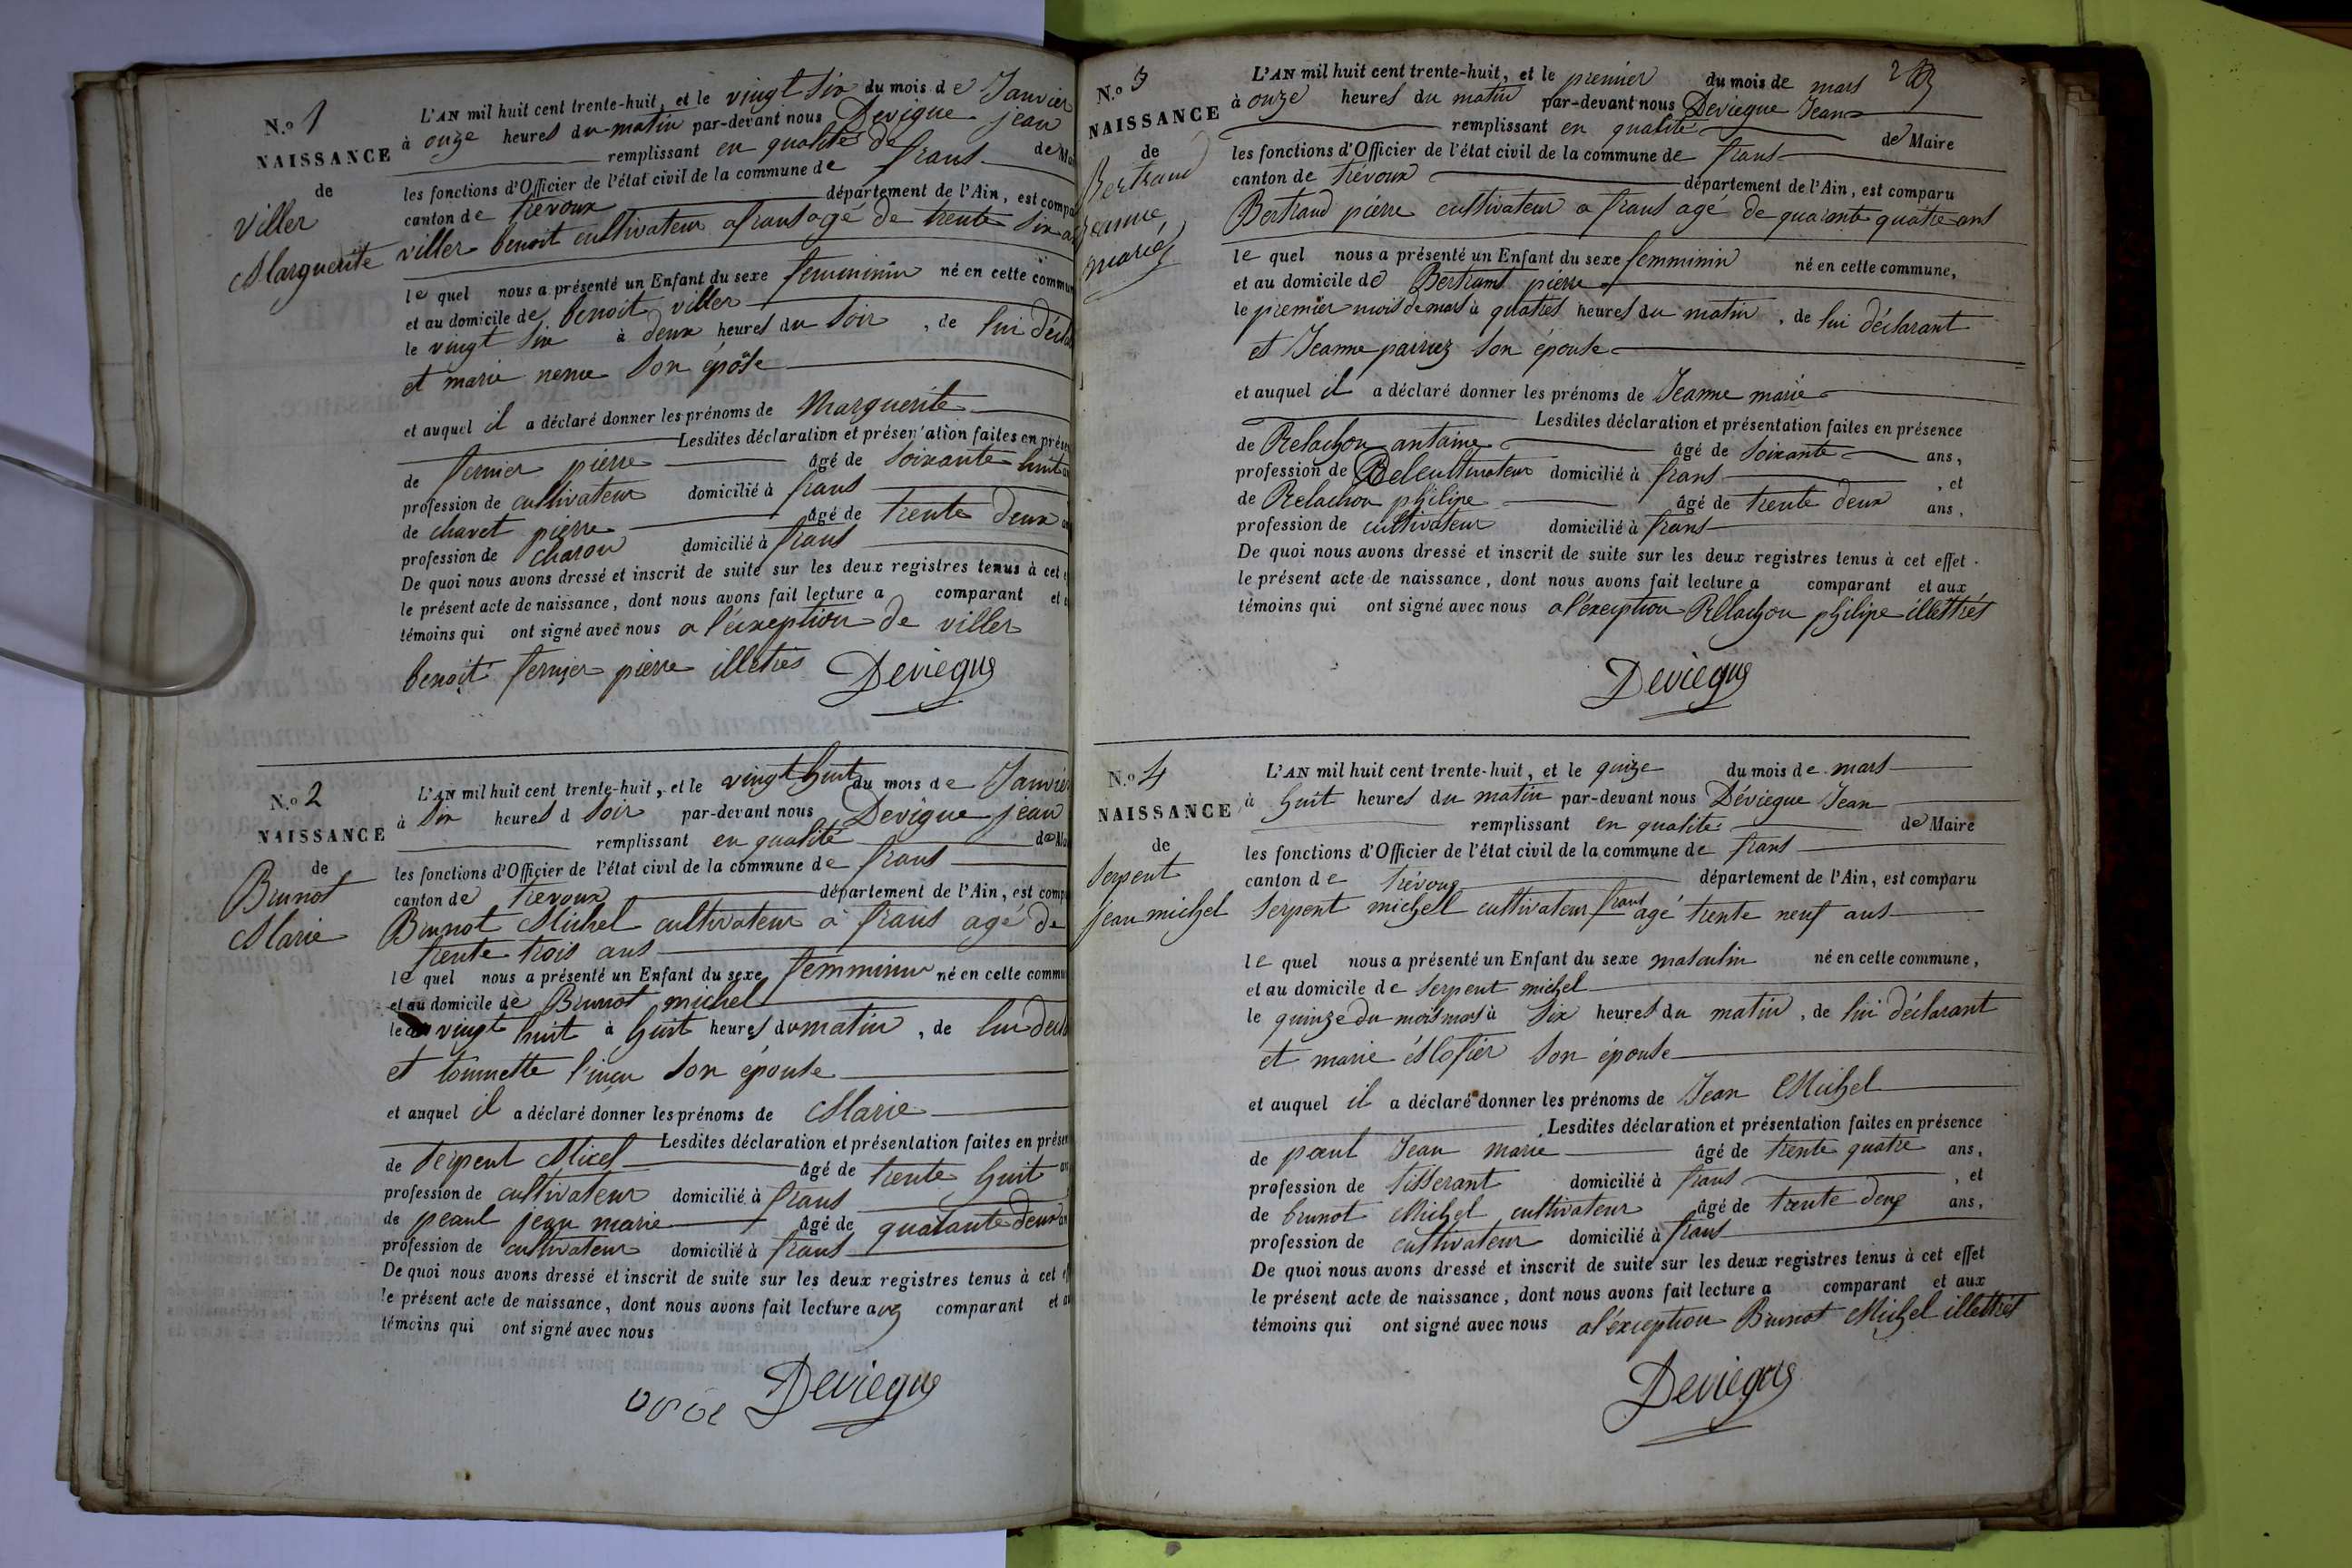 N.º 1
NAISSANCE
de
Viller
Marguerite
L'AN mil huit cent trente-huit, et le vingt six du mois de Janvier
à onze heures du matin par-devant nous Devigue jean
remplissant en qualité de de Ma
les fonctions d'Officier de l'état civil de la commune de frans
canton de trevoux département de l'Ain, est compa
viller benoit cultivateur a frans agé de trente six a
le quel nous a présenté un Enfant du sexe femininin né en cette commun
et au domicile de benoit viller
le vingt six à deux heures du soir , de lui décla
et marie neme son épôse
et auquel il a déclaré donner les prénoms de Marguerite
Lesdites déclaration et présentation faites en prése
de fernier pierre âgé de soixante huit an
profession de cultivateur domicilié à frans
de chavet pierre âgé de trente deux an
profession de charon domicilié à frans
De quoi nous avons dressé et inscrit de suite sur les deux registres tenus à cet e
le présent acte de naissance, dont nous avons fait lecture a comparant et
témoins qui ont signé avec nous a l'éxeption de viller
benoit fernier pierre illetrés Deviegue
N.º 2
NAISSANCE
de
Brunot
Marie
L'AN mil huit cent trente-huit, et le vingt huit du mois de Janvier
à six heures d soir par-devant nous Devigue jean
remplissant en qualité de Ma
les fonctions d'Officier de l'état civil de la commune de frans
canton de trevoux département de l'Ain, est compa
Brunot Michel cultivateur à frans age de
trente trois ans
le quel nous a présenté un Enfant du sexe femminin né en cette commun
et au domicile de Brunot michel
le vingt huit à huit heures du matin , de lui décla
et son épouse
et auquel il a déclaré donner les prénoms de Marie
Lesdites déclaration et présentation faites en présen
de Serpent Micel âgé de trente huit an
profession de cultivateur domicilié à frans
de peaul jean marie âgé de quarante deux an
profession de cultivateur domicilié à frans
De quoi nous avons dressé et inscrit de suite sur les deux registres tenus à cet ef
le présent acte de naissance, dont nous avons fait lecture aux comparant et au
témoins qui ont signé avec nous
Deviegue
N.º 3
NAISSANCE
de
Bertrand
jeanne
marie
L'AN mil huit cent trente-huit, et le premier du mois de mars
à onze heures du matin par-devant nous Deviegue Jean
remplissant en qualité de Maire
les fonctions d'Officier de l'état civil de la commune de frans
canton de trévoux département de l'Ain, est comparu
Bertraud pierre cultivateur a frans agé de quarante quatre ans
le quel nous a présenté un Enfant du sexe femminin né en cette commune,
et au domicile de Bertrant pierre
le premier mois de mars à quatres heures du matin , de lui déclarant
et Jeanne pairiez son épouse
et auquel il a déclaré donner les prénoms de Jeanne marie
Lesdites déclaration et présentation faites en présence
de Relachon antoine âgé de soixante ans,
profession de cultivateur domicilié à frans , et
de Relachon philipe âgé de trente deux ans,
profession de cultivateur domicilié à frans
De quoi nous avons dressé et inscrit de suite sur les deux registres tenus à cet effet
le présent acte de naissance, dont nous avons fait lecture a comparant et aux
témoins qui ont signé avec nous a l'éxeception Rellachon philipe illettrés
Deviegue
N.º 4
NAISSANCE
de
Serpent
jean michel
L'AN mil huit cent trente-huit, et le quinze du mois de mars
à huit heures du matin par-devant nous Déviegue Jean
remplissant en qualité de Maire
les fonctions d'Officier de l'état civil de la commune de frans
canton de trévoux département de l'Ain, est comparu
Serpent michell cultivateur frans agé trente neuf ans
le quel nous a présenté un Enfant du sexe masculin né en cette commune,
et au domicile de Serpent michel
le quinze du mois mars à six heures du matin , de lui déclarant
et marie son épouse
et auquel il a déclaré donner les prénoms de Jean Michel
Lesdites déclaration et présentation faites en présence
de paeul Jean marie âgé de trente quatre ans,
profession de tisserant domicilié à frans , et
de brunot Michel cultivateur âgé de trente deux ans,
profession de cultivateur domicilié à frans
De quoi nous avons dressé et inscrit de suite sur les deux registres tenus à cet effet
le présent acte de naissance, dont nous avons fait lecture a comparant et aux
témoins qui ont signé avec nous a l'éxception Brunot Michel illettrés
Deviegue